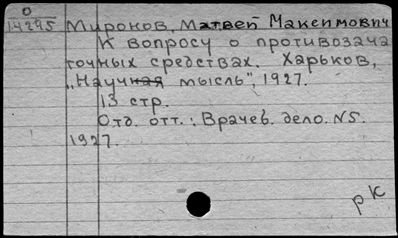 О
14295
Миронов, Матвей Максимович
К вопросу о противозача
точных средствах. Харьков,
„Научная мысль", 1927.
13 стр.
Отд. отт.: Врачеб. дело. N5.
1927.
рк